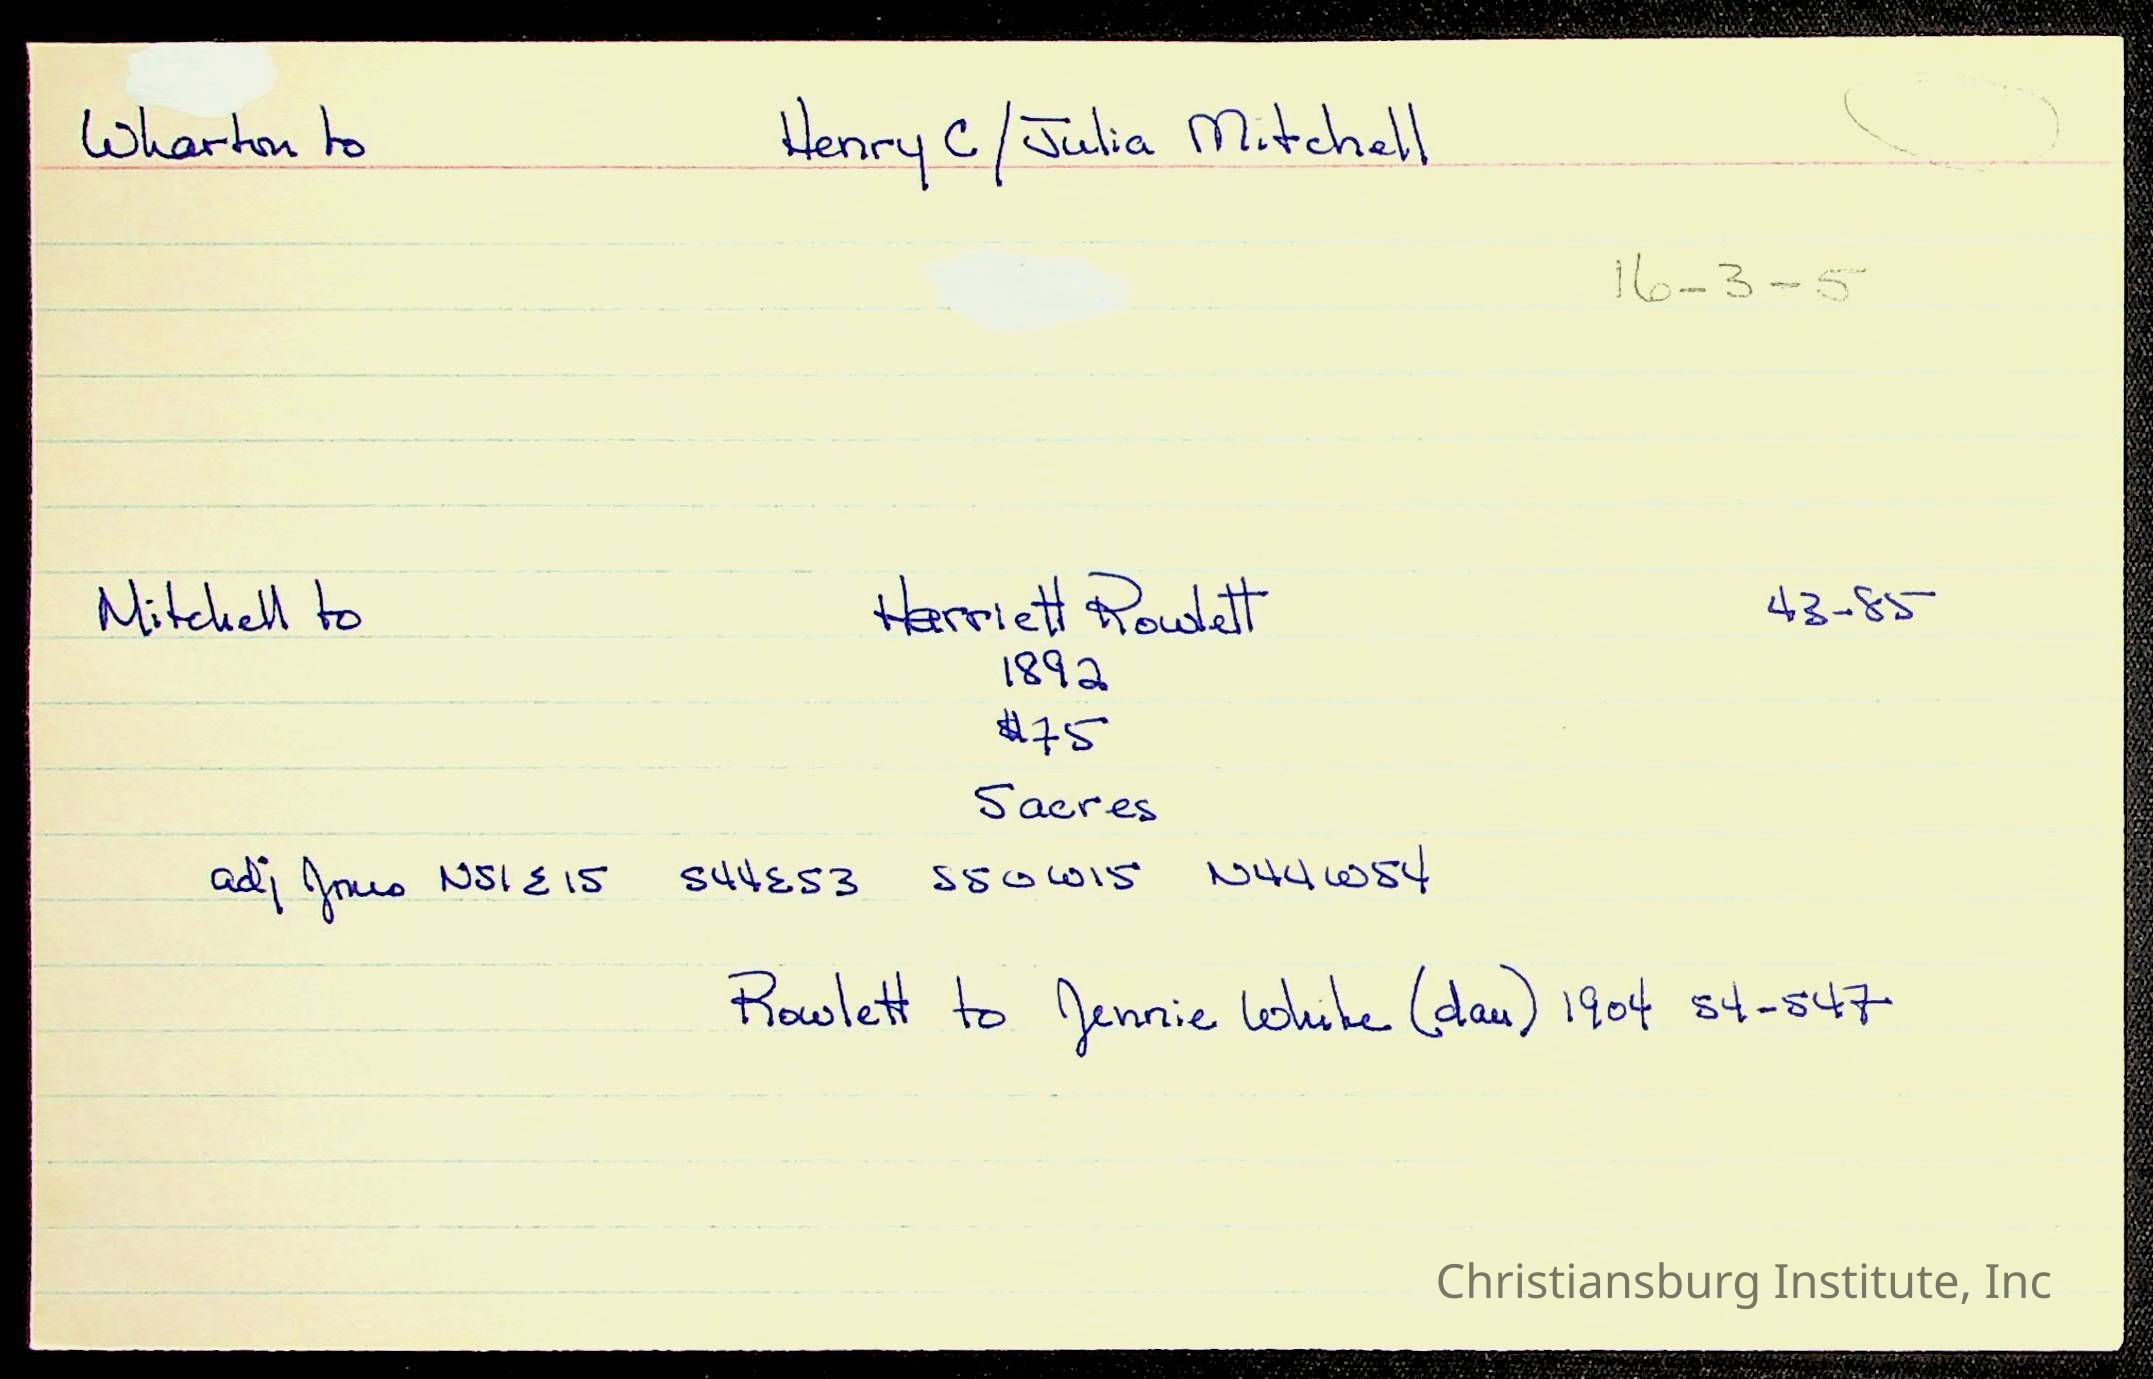 Wharton to Henry C/Julia Mitchell
16-3-5
Mitchell to Harriett Rowlett 43-85
1892
$75
5 acres
adj Jones N51E15 S44E53 S50W15 N44W54
Rowlett to Jennie White (dau) 1904 54-547
Christiansburg Institute, Inc